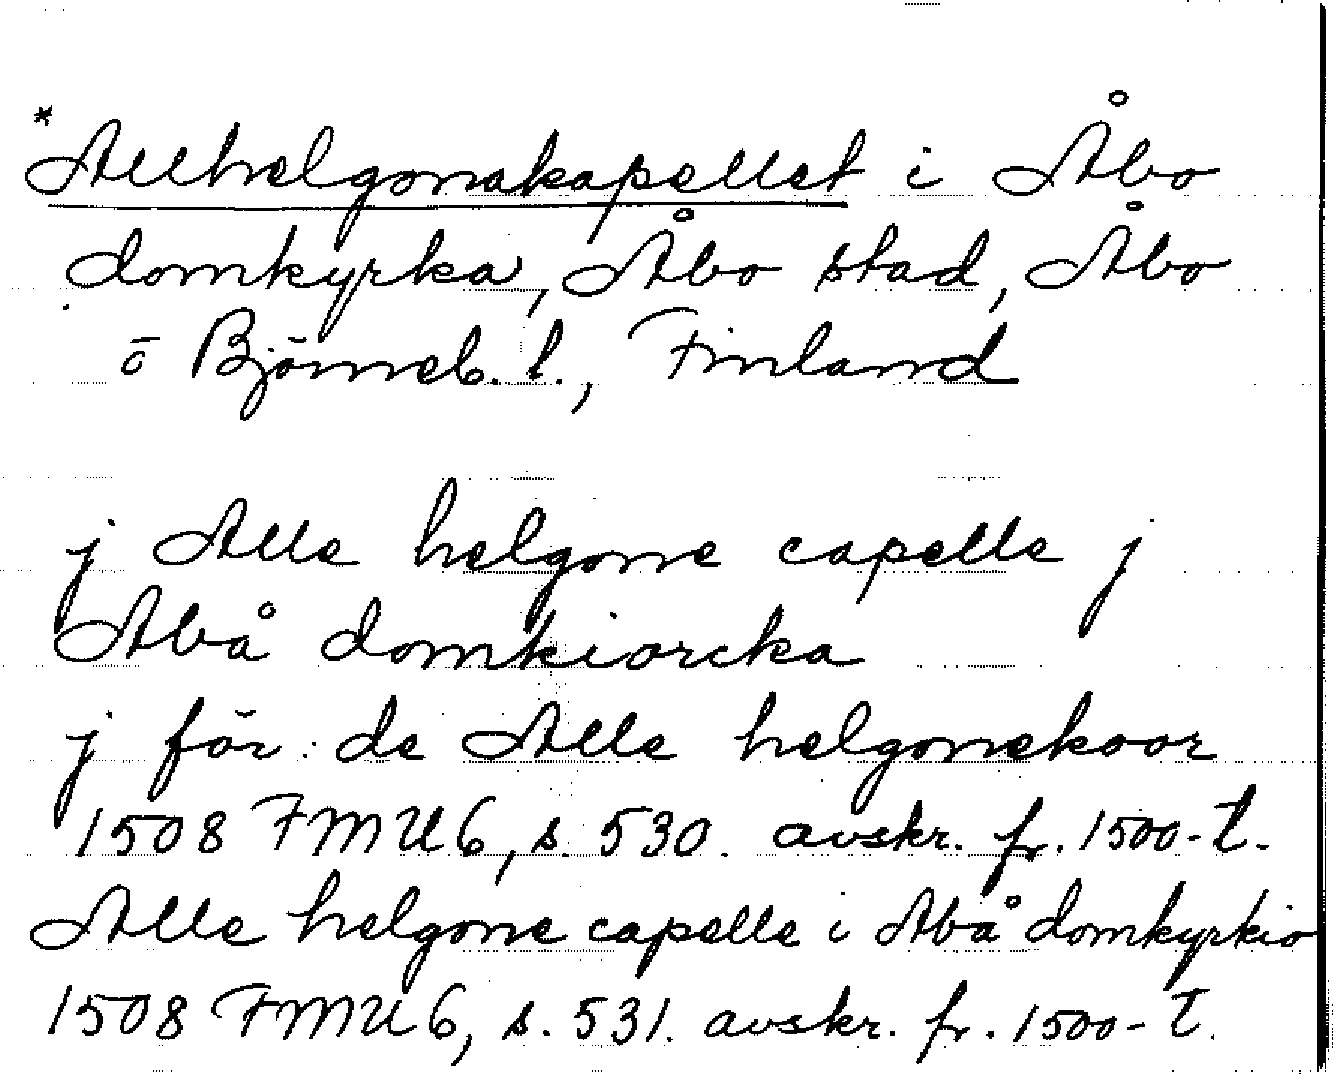 *Allhelgonakapellet i Åbo
domkyrka, Åbo stad, Åbo
o Björneb. l., Finland
j Alle helgone capelle j
Abå domkiorcka
j för: de Alle helgonekoor
1508 FMU 6, s. 530. avskr. fr. 1500-t.
Alle helgone capelle i Abå domkyrkio
1508 FMU 6, s. 531. avskr. fr. 1500-t.